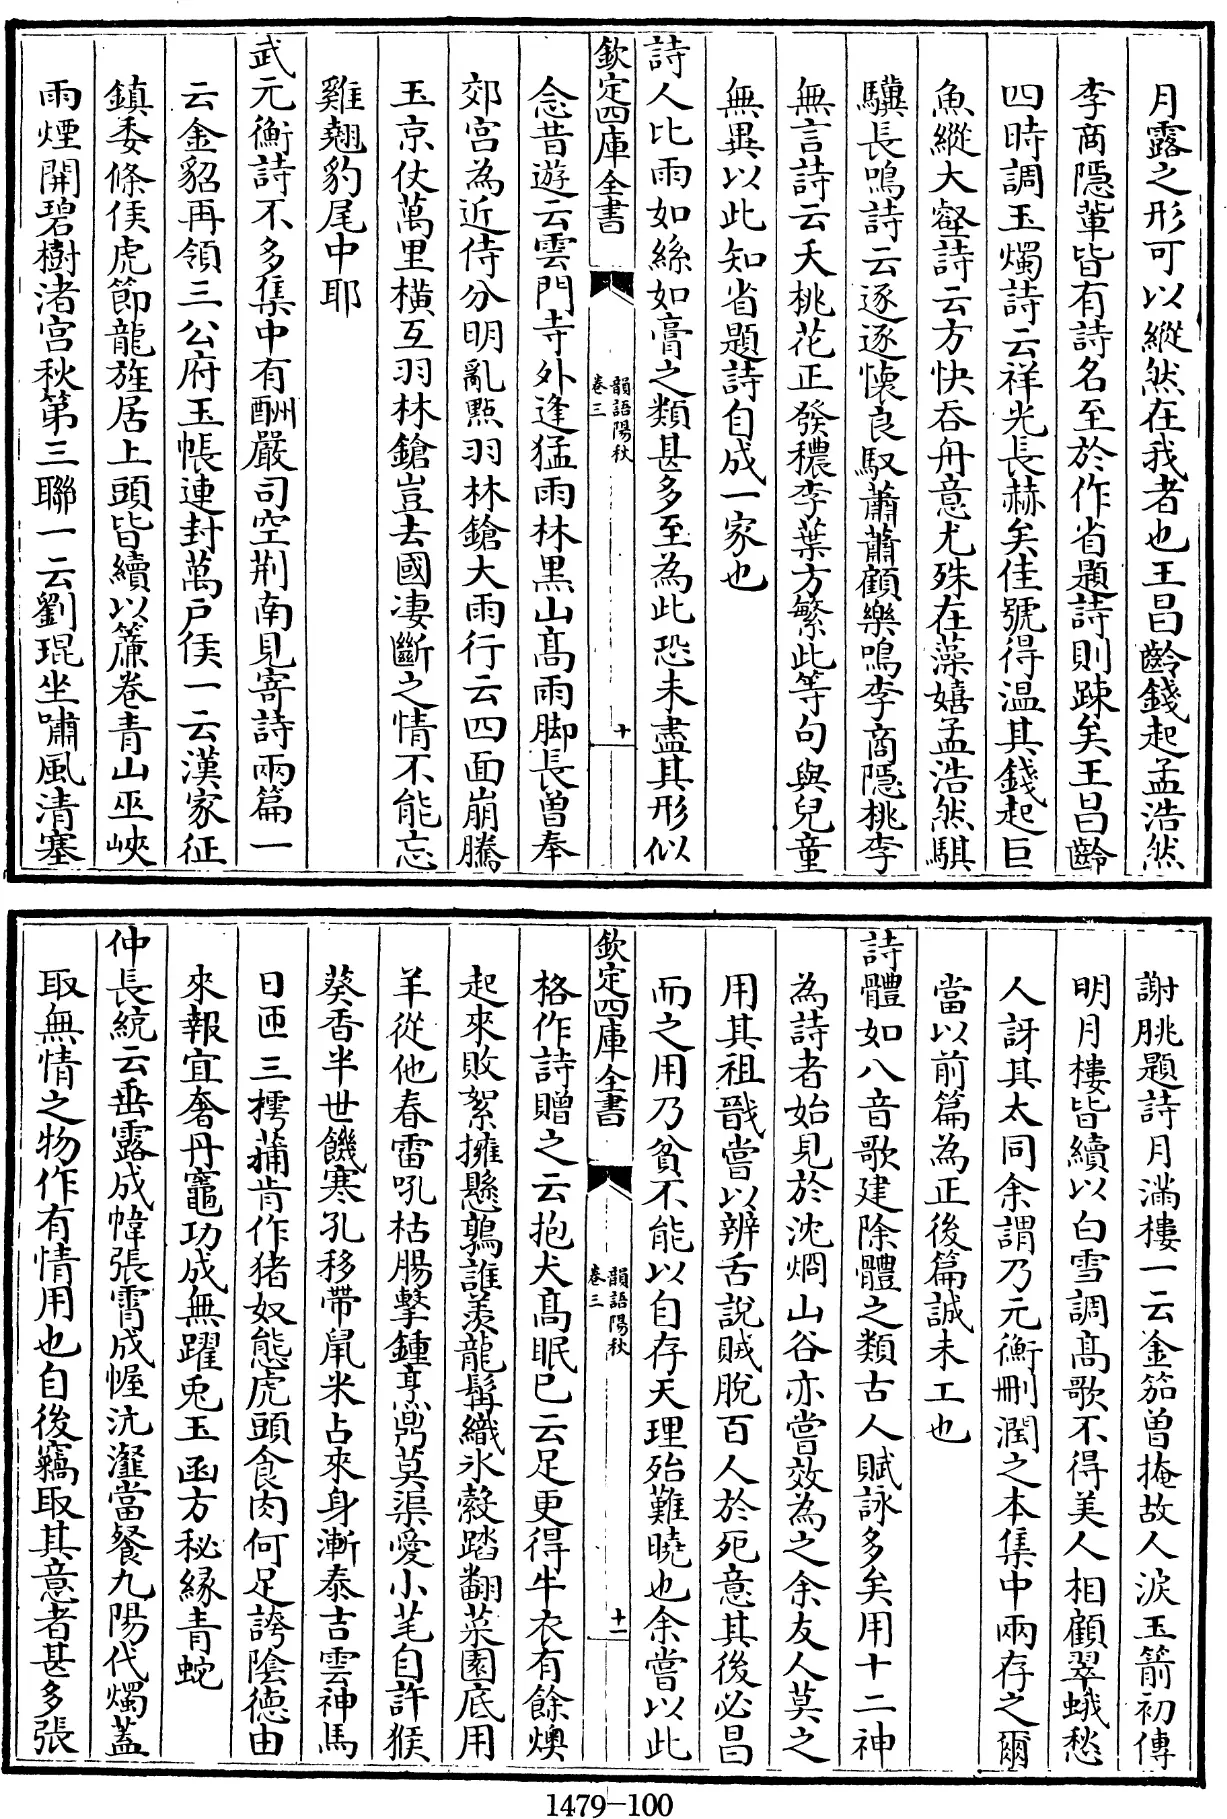 月露之形可以縱然在我者也王昌齡錢起孟浩然
李商隱輩皆有詩名至於作省題詩則踈矣王昌齡
四時調玉燭詩云祥光長赫矣佳號得温其錢起巨
魚縱大壑詩云方快吞舟意尤殊在藻嬉孟浩然騏
驥長鳴詩云逐逐懷良馭蕭蕭顧樂鳴李商隱桃李
無言詩云夭桃花正發穠李葉方繁此等句與兒童
無異以此知省題詩自成一家也
詩人比雨如絲如膏之類甚多至為此恐未盡其形似
欽定四庫全書
韻語陽秋
卷三
十
念昔遊云雲門寺外逢猛雨林黒山髙雨脚長曽奉
郊宫為近侍分明亂㸃羽林鎗大雨行云四面崩騰
玉京仗萬里橫亙羽林鎗豈去國凄斷之情不能忘
雞翹豹尾中耶
武元衡詩不多集中有酬嚴司空荆南見寄詩兩篇一
云金貂再領三公府玉帳連封萬戸侯一云漢家征
鎮委條侯虎節龍旌居上頭皆續以簾卷青山巫峽
雨煙開碧樹渚宫秋第三聯一云劉琨坐嘯風清塞
謝朓題詩月滿樓一云金笳曽掩故人淚玉箭初傳
明月樓皆續以白雪調髙歌不得美人相顧翠蛾愁
人訝其太同余謂乃元衡刪潤之本集中兩存之爾
當以前篇為正後篇誠未工也
詩體如八音歌建除體之類古人賦詠多矣用十二神
為詩者始見於沈烱山谷亦嘗效為之余友人莫之
用其祖戩嘗以辨舌說賊脫百人於死意其後必昌
而之用乃貧不能以自存天理殆難曉也余嘗以此
欽定四庫全書
韻語陽秋
卷三
十一
格作詩贈之云抱犬髙眠已云足更得牛衣有餘燠
起來敗絮擁懸鶉誰羨龍髯織冰縠踏翻菜園底用
羊從他春雷吼枯腸擊鍾烹鼎莫渠愛小芼自許猴
葵香半世饑寒孔移帶鼠米占來身漸泰吉雲神馬
日匝三樗蒱肯作猪奴態虎頭食肉何足誇陰德由
來報宜奢丹竈功成無躍兎玉函方秘縁青蛇
仲長統云垂露成幃張霄成幄沆瀣當餐九陽代燭蓋
取無情之物作有情用也自後竊取其意者甚多張
1479-100